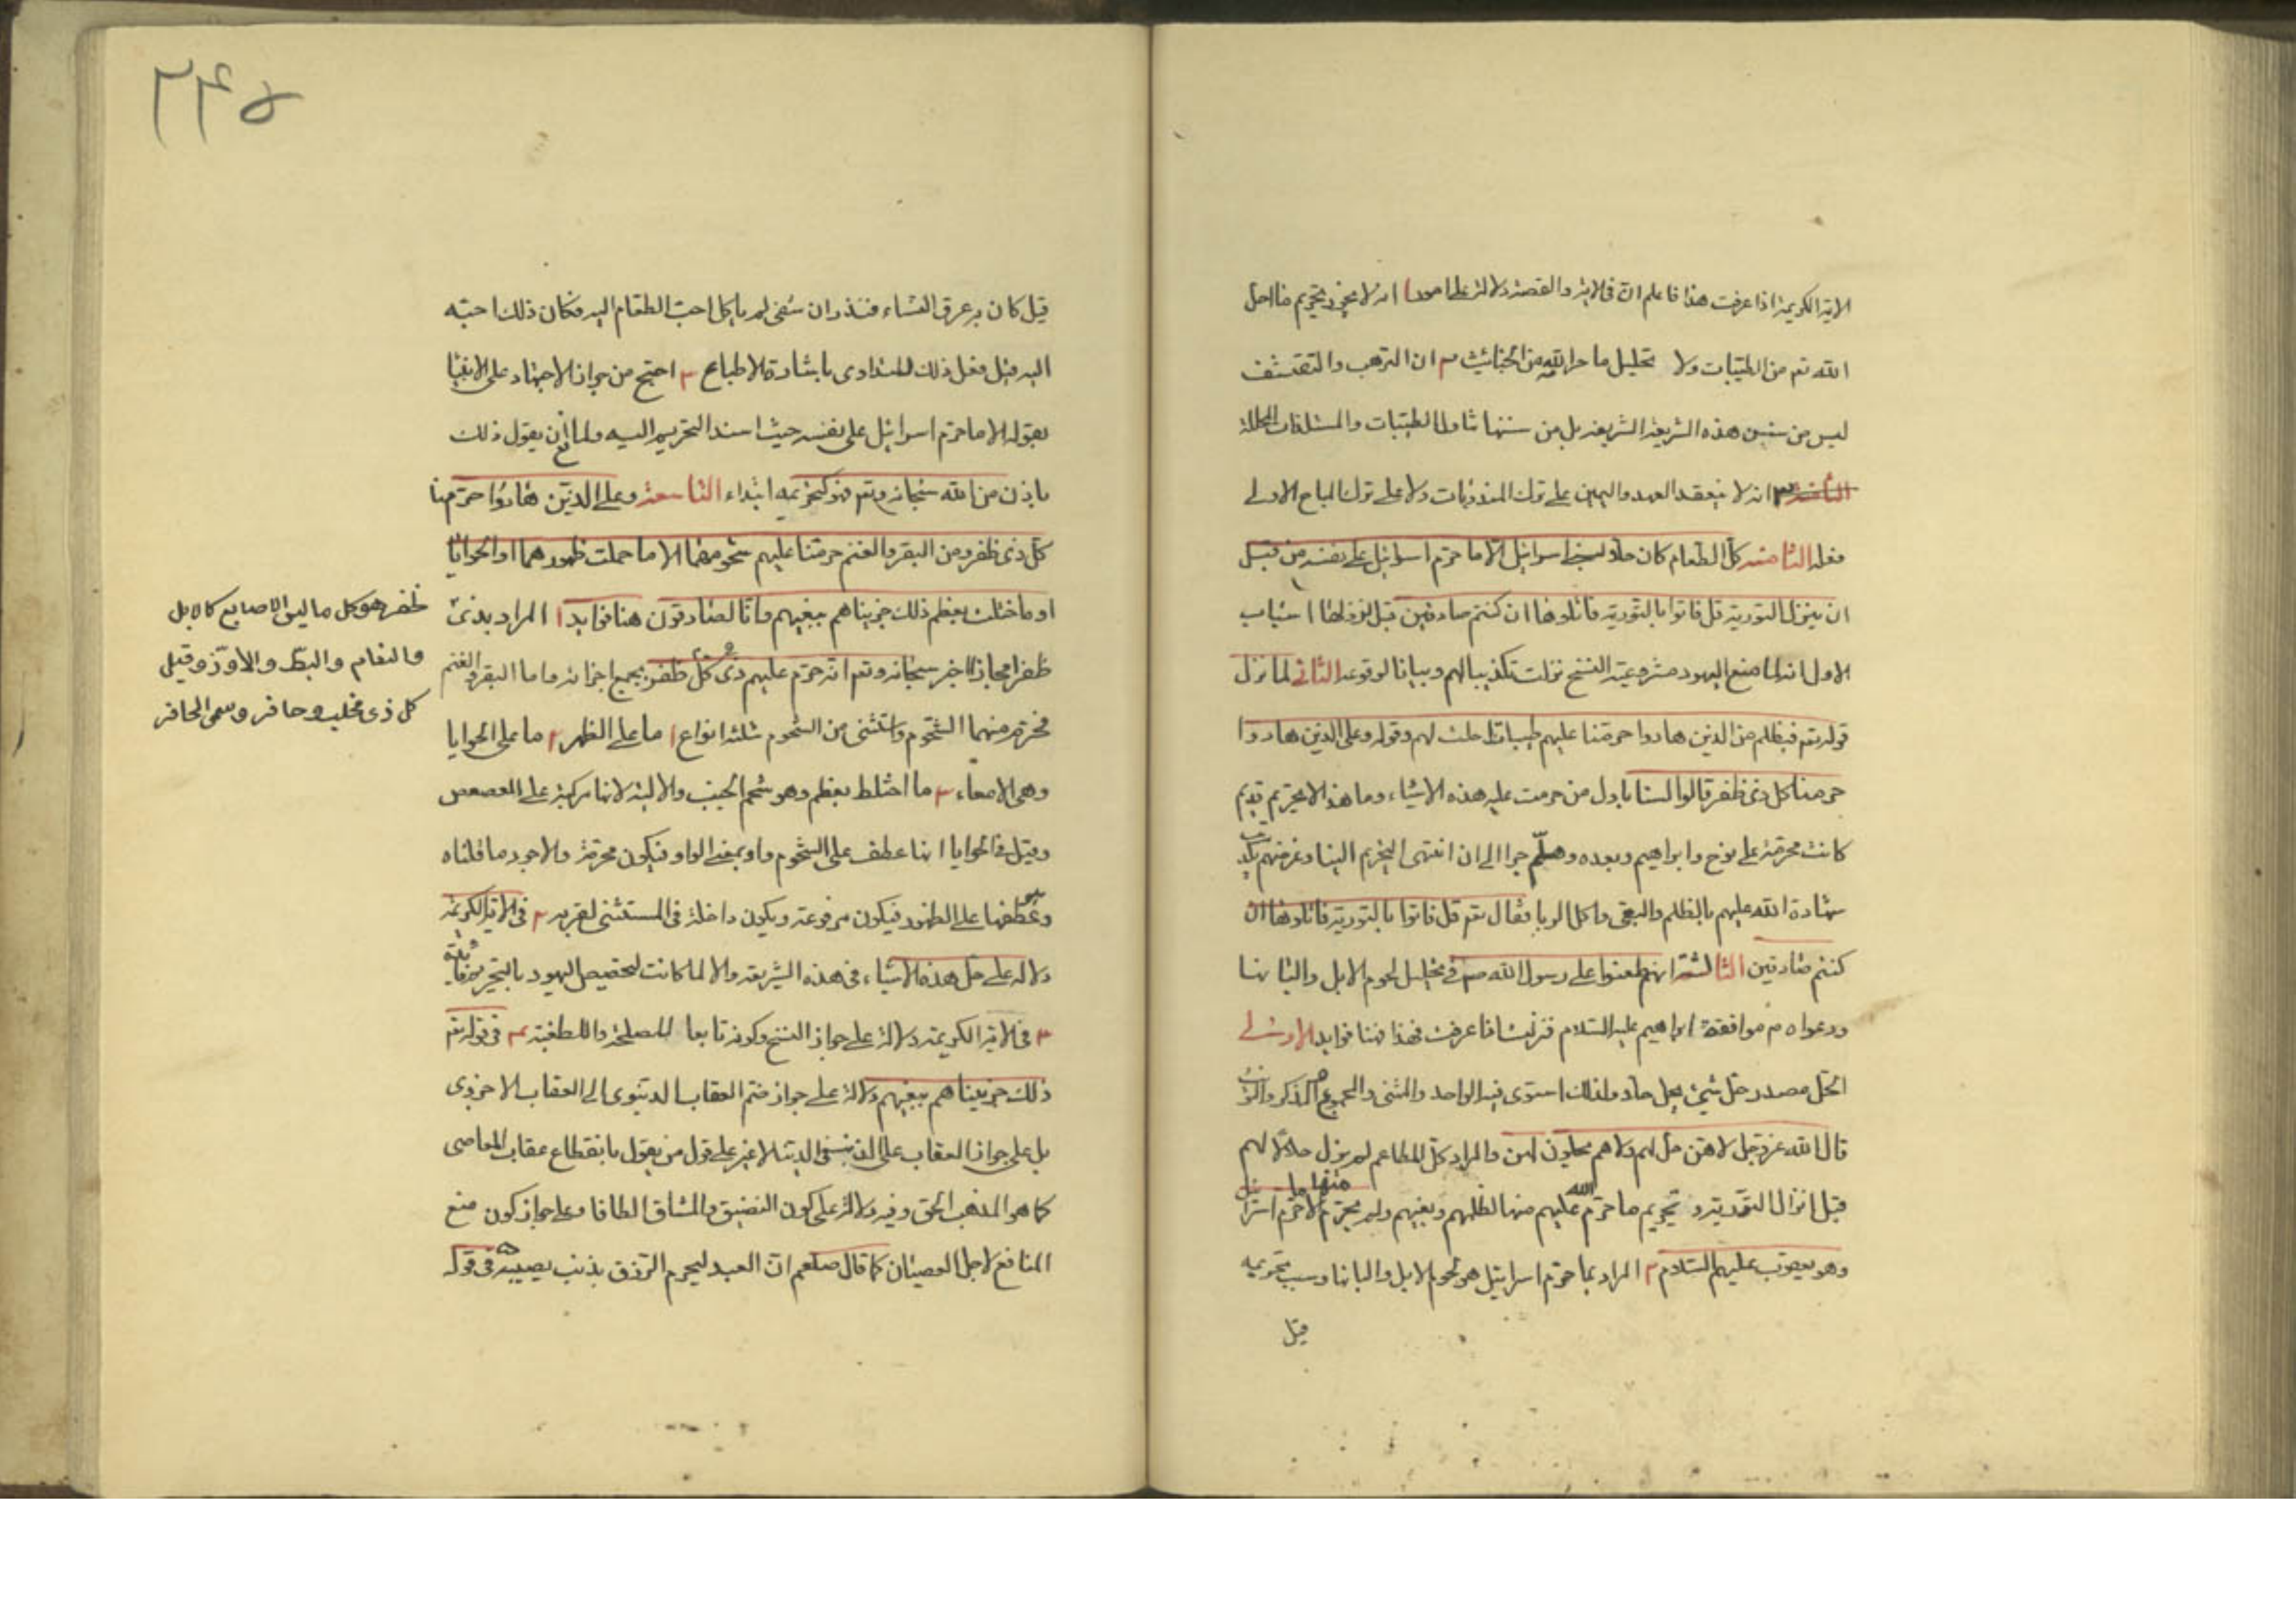 الآية الكريمة اذا عرفت هذا فاعلم ان في الاية والقصة دلالة على امور ا انه لا يجوز تحريم ما احل
الله تع من الطيبات ولا تحليل ما حرا الله من الخبائث ٢ ان الترهب والتقشف
ليس من سنن هذه الشريعة الشريفة بل من سننها تناول الطيبات والمستلذات المحللة
٣ انه لا ينعقد العهد واليمين على ترك المندوبات ولا على ترك المباح الاولى
فعله الثامنة كل الطعام كان حلا لبني اسرائيل الا ما حرم اسرائيل على نفسه من قبل
ان ينزل التورية قل فاتوا بالتورية فاتلوها ان كنتم صادقين قيل لنزولها اسباب
الاول انه لما منع اليهود مشروعية النسخ نزلت تكذيبا لهم وبيانا لوقوعه الثاني لما نزل
قوله تع فبظلم من الذين هادوا حرمنا عليهم طيبات احلت لهم وقوله وعلى الذين هادوا
حرمنا كل ذي ظفر قالوا لسنا باول من حرمت عليه هذه الاشياء وما هذا الا تحريم قديم
كانت محرمة على نوح وابراهيم وبعده وهلم جرا الى ان انتهى التحريم الينا وغرضهم تكذيب
شهادة الله عليهم بالظلم والبغي واكل الربا فقال تع قل فاتوا بالتورية فاتلوها ان
كنتم صادقين الثالثة انهم طعنوا على رسول الله ص في تحليل لحوم الابل والبانها
ودعواه م موافقة ابراهيم عليه السلام فنزلت فاعرفت فهذا فهنا فوايد الاولى
الحل مصدر حل شيئ يحل حلا ولذلك استوى فيه الواحد والمثنى والمجموع المذكر والمؤنث
قال الله عز وجل لا هن حل لهم ولا هم يحلون لهن والمراد كل المطاعم لم يزل حلالا لهم
قبل انزال التورية وتحريم ما حرم الله عليهم منها لظلمهم وبغيهم ولم يحرم منها الا ما حرم اسرائيل
وهو يعقوب عليهم السلام ٢ المراد بما حرم اسرائيل هو لحوم الابل والبانها وسبب تحريمه
قيل
٢٤٥
قيل كان به عرق النساء فنذر ان شفي لم ياكل احب الطعام اليه فكان ذلك احبه
اليه قيل فعل ذلك للتداوى باشارة الاطباء ٣ احتج من جواز الاجتهاد على الانبيا
بقوله الا ما حرم اسرائيل على نفسه حيث اسند التحريم اليه ولمانع ان يقول ذلك
باذن من الله سبحانه وتع فهو كتحريمه ابتداء التاسعة وعلى الذين هادوا حرمنا
كل ذي ظفر ومن البقر والغنم حرمنا عليهم شحومهما الا ما حملت ظهورهما او الحوايا
او ما اختلط بعظم ذلك جزيناهم ببغيهم وانا لصادقون هنا فوايد ا المراد بذي
ظفر هو كل ما ليس الاصابع كالابل
والنعام والبط والاوز وقيل
كل ذي مخلب وحافر وسمى الحافر
ظفرا مجازا اخبر سبحانه وتع انه حرم عليهم ذي كل ظفر بجميع اجزائه واما البقر والغنم
فحرم منهما الشحوم واستثنى من الشحوم ثلثة انواع ا ما على الظهر ٢ ما على الحوايا
وهي الامعاء ٣ ما اختلط بعظم وهو شحم الجنب والالية لانها مركبة على العصعص
وقيل في الحوايا انها عطف على الشحوم واو بمعنى الواو فيكون محرمة والاجود ما قلناه
وهو عطفها على الظهور فيكون مرفوعة ويكون داخلة في المستثنى لقربه ٢ في الآية الكريمة
دلالة على حل هذه الاشياء في هذه الشريعة والا لما كانت لتخصيص اليهود بالتحريم فايدة
٣ في الاية الكريمة دلالة على جواز النسخ وكونه تابعا للمصلحة واللطفية ٤ في قوله تع
ذلك جزيناهم ببغيهم دلالة على جواز ضم العقاب الدنيوى الى العقاب الاخروى
بل على جواز العقاب على الذنب في الدنيا لا غير على قول من يقول بانقطاع عقاب المعاصى
كما هو المذهب الحق وفيه دلالة على كون التضييق والمشاق الطافا وعلى جواز كون منع
المنافع لاجل العصيان كما قال صلعم ان العبد ليحرم الرزق بذنب يصيبه في قوله